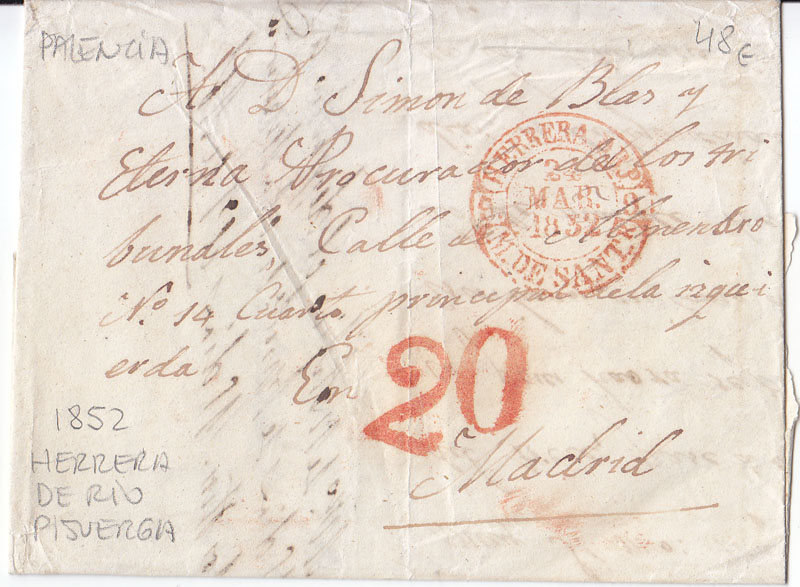 PALENCIA
48 €
A D. Simon de Blas y
Eterna Procurador de los tri
bunales, Calle del Almendro
Nº 14 Cuarto principal de la izqui
erda, En
Madrid
HERRERA
24
MAR.
1852
M. DE SANT.
20
1852
HERRERA
DE RIO
PISUERGA